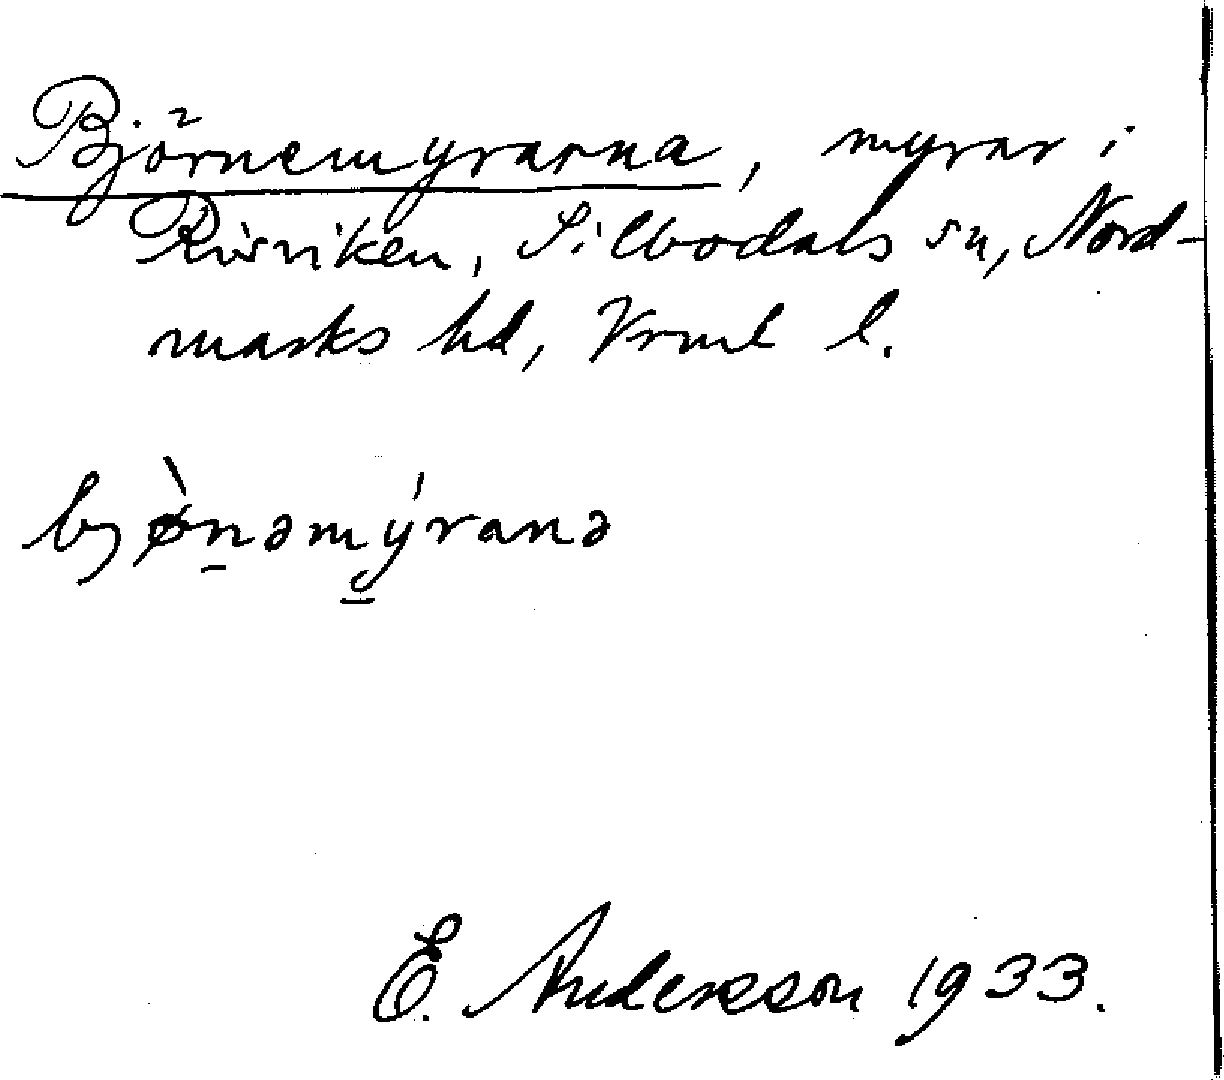 Björnemyrarna, myrar i
Risviken, Silbodals sn, Nord-
marks hd, Vrml l.
bjø̀nəmýranə
E. Andersson 1933.